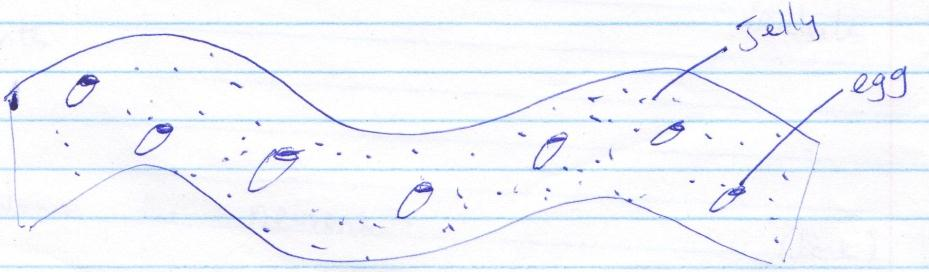 Jelly
egg